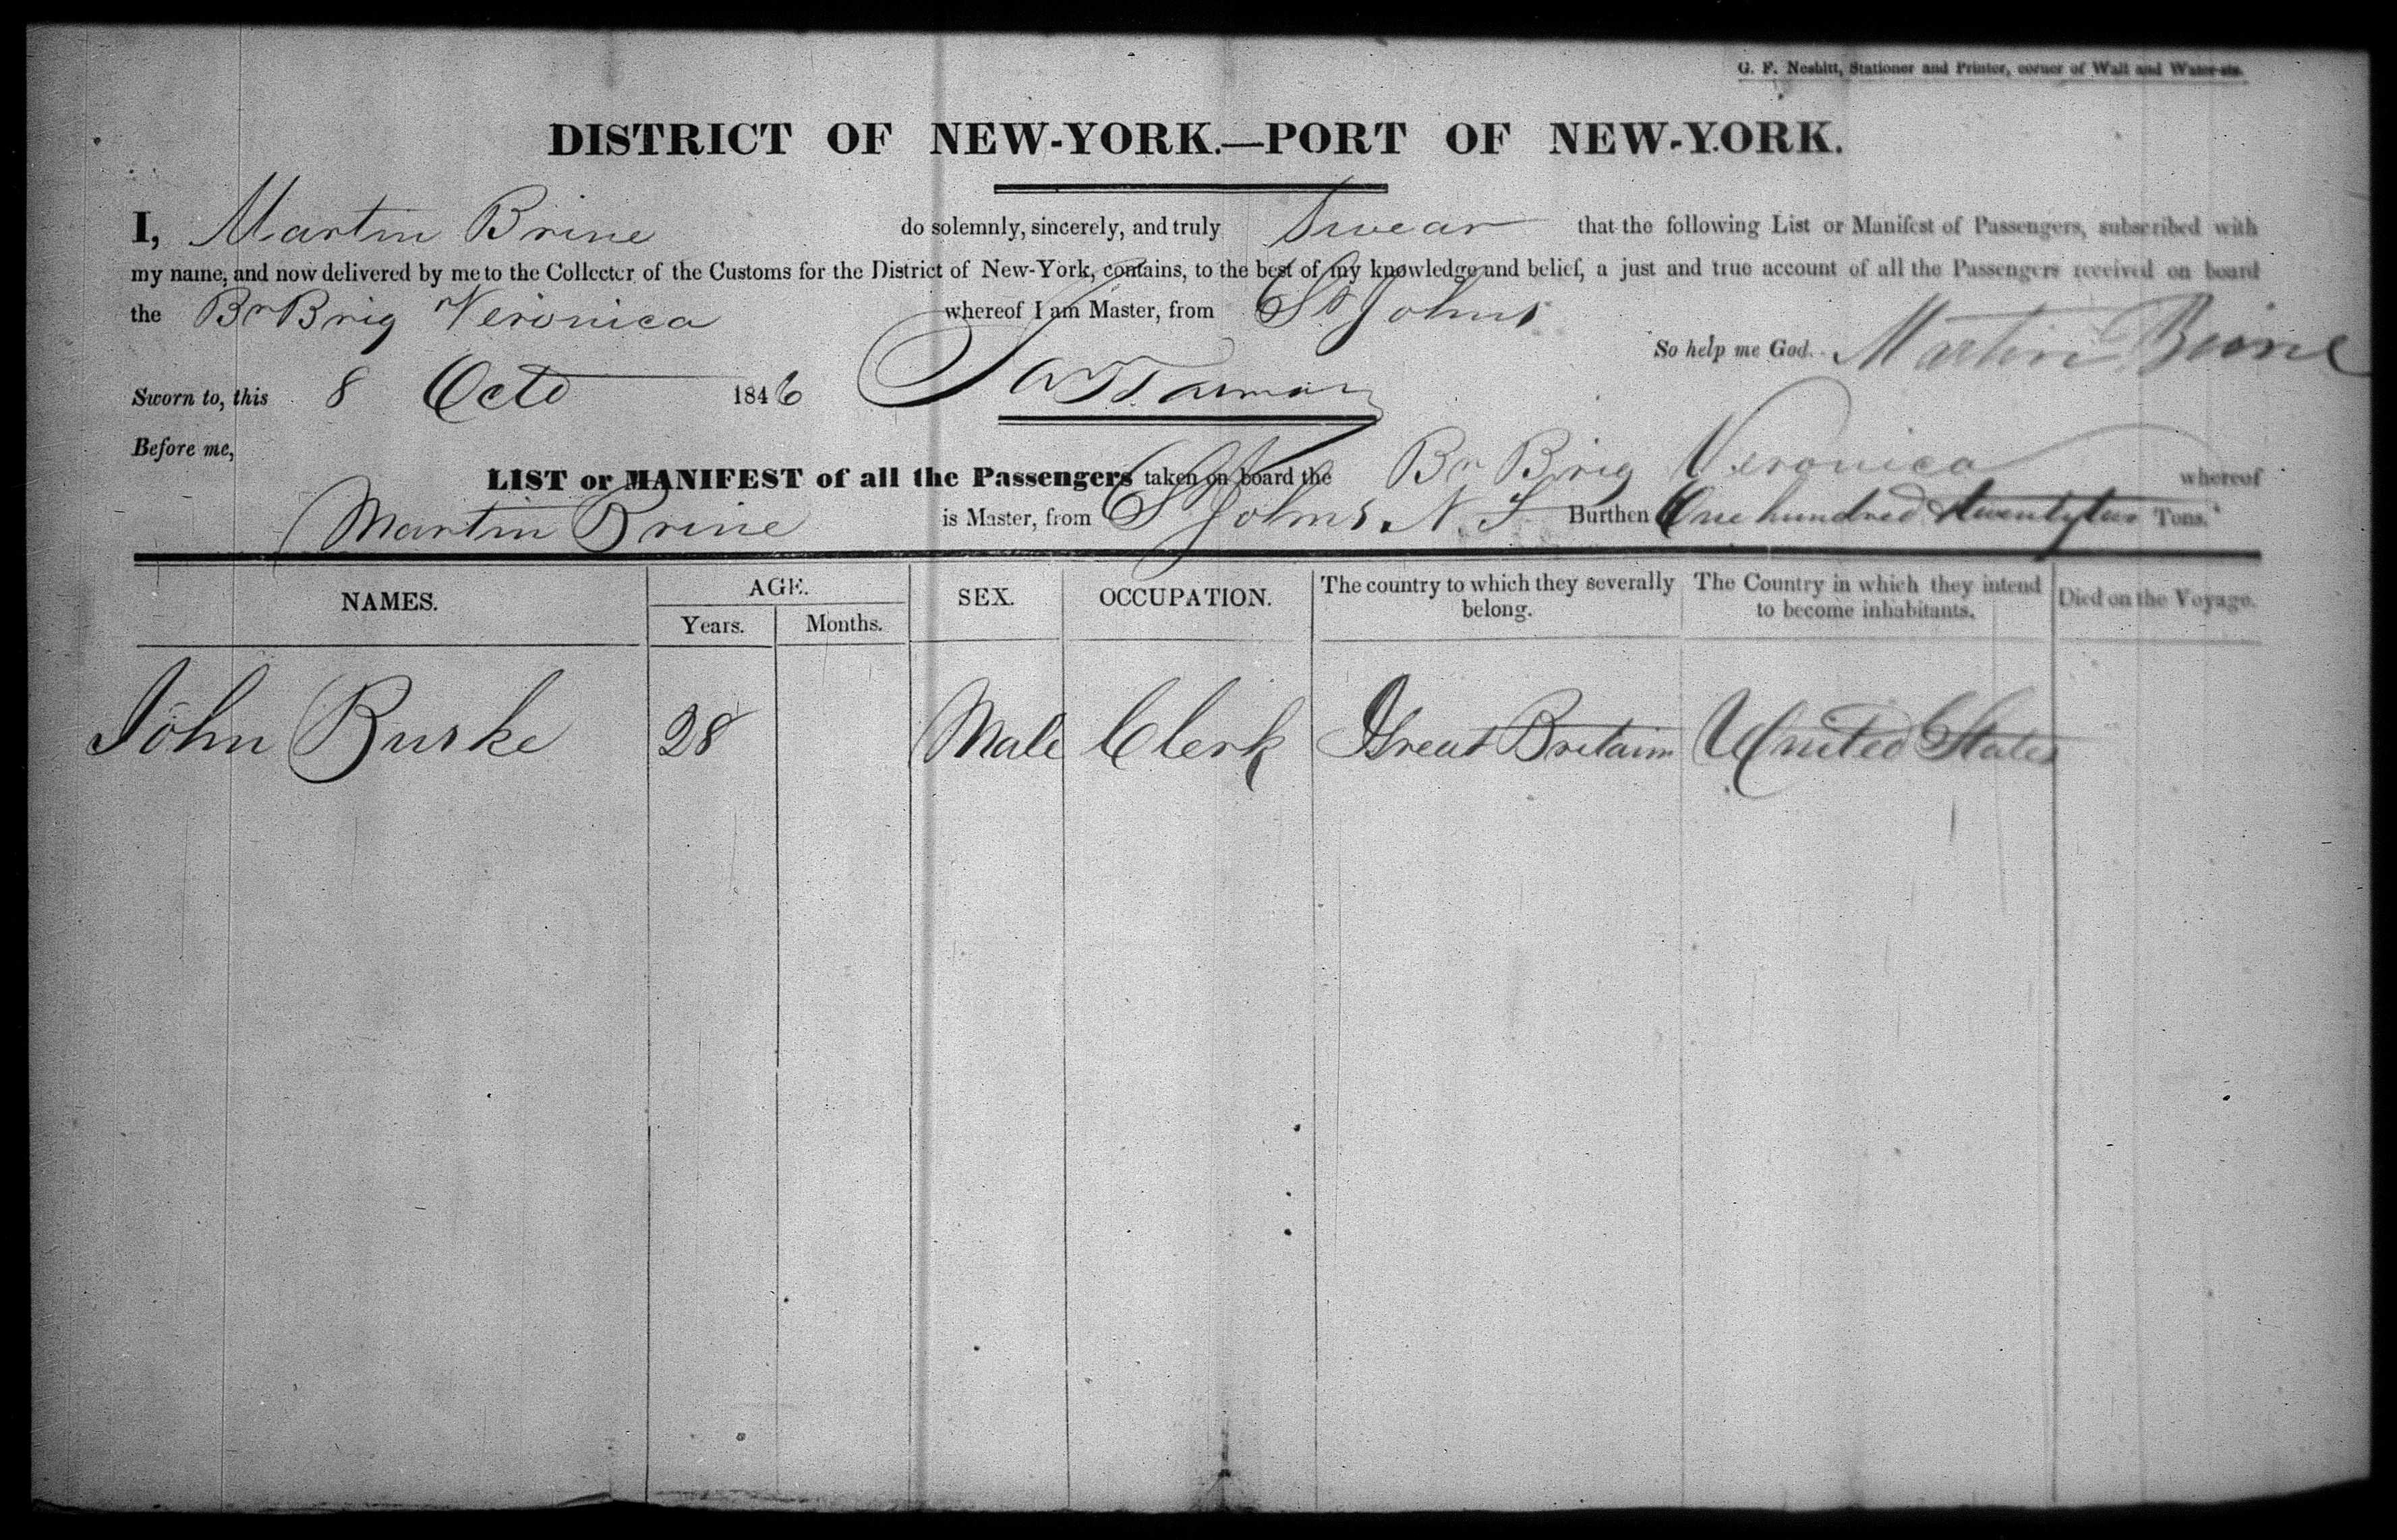 G. F. Nesbitt, Stationer and Printer, corner of Wall and Water-sts.
DISTRICT OF NEW-YORK.—PORT OF NEW-YORK.
I, Martin Brine do solemnly, sincerely, and truly Swear that the following List or Manifest of Passengers, subscribed with
my name, and now delivered by me to the Collector of the Customs for the District of New-York, contains, to the best of my knowledge and belief, a just and true account of all the Passengers received on board
the Br Brig Veronica whereof I am Master, from St Johns
So help me God. Martin Brine
Sworn to, this 8 Octo 1846
Before me,
LIST or MANIFEST of all the Passengers taken on board the Br Brig Veronica whereof
Martin Brine is Master, from St Johns N. F. Burthen One hundred twentytwo Tons.
NAMES. AGE. SEX. OCCUPATION. The country to which they severally belong. The Country in which they intend to become inhabitants. Died on the Voyage.
Years. Months.
John Burke 28 Male Clerk Great Britain United States